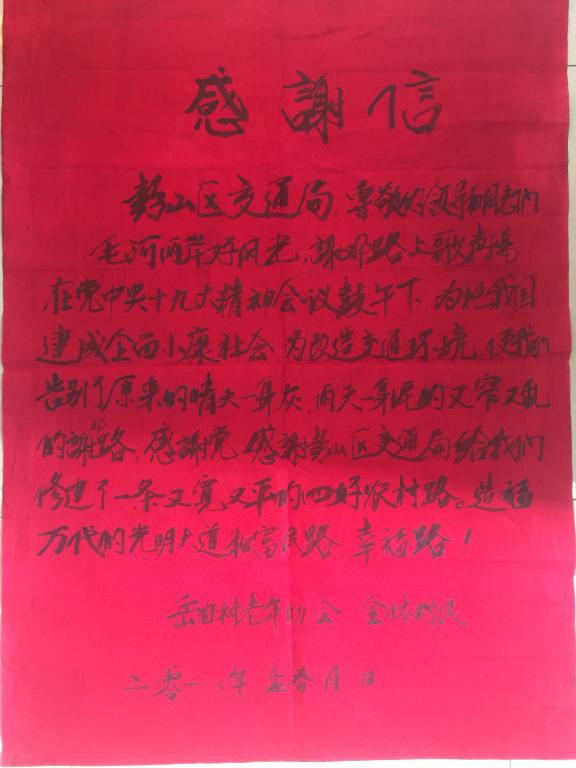 感謝信
彭山区交通局:尊敬的领导同志们
毛河两岸好风光,謝邓路上歌声揚
在党中央十九大精神会议鼓午下,为把我国
建成全面小康社会,为改造交通环境,使我们
告别了原来的晴天一身灰,雨天一身泥的又窄又乱
的謝邓路,感謝党,感謝彭山区交通局给我们
修建了一条又宽又平的四好农村路。造福
万代的光明大道和富民路 幸福路!
岳油村老年协会 全体村民
二零一八年 孟春 月 日